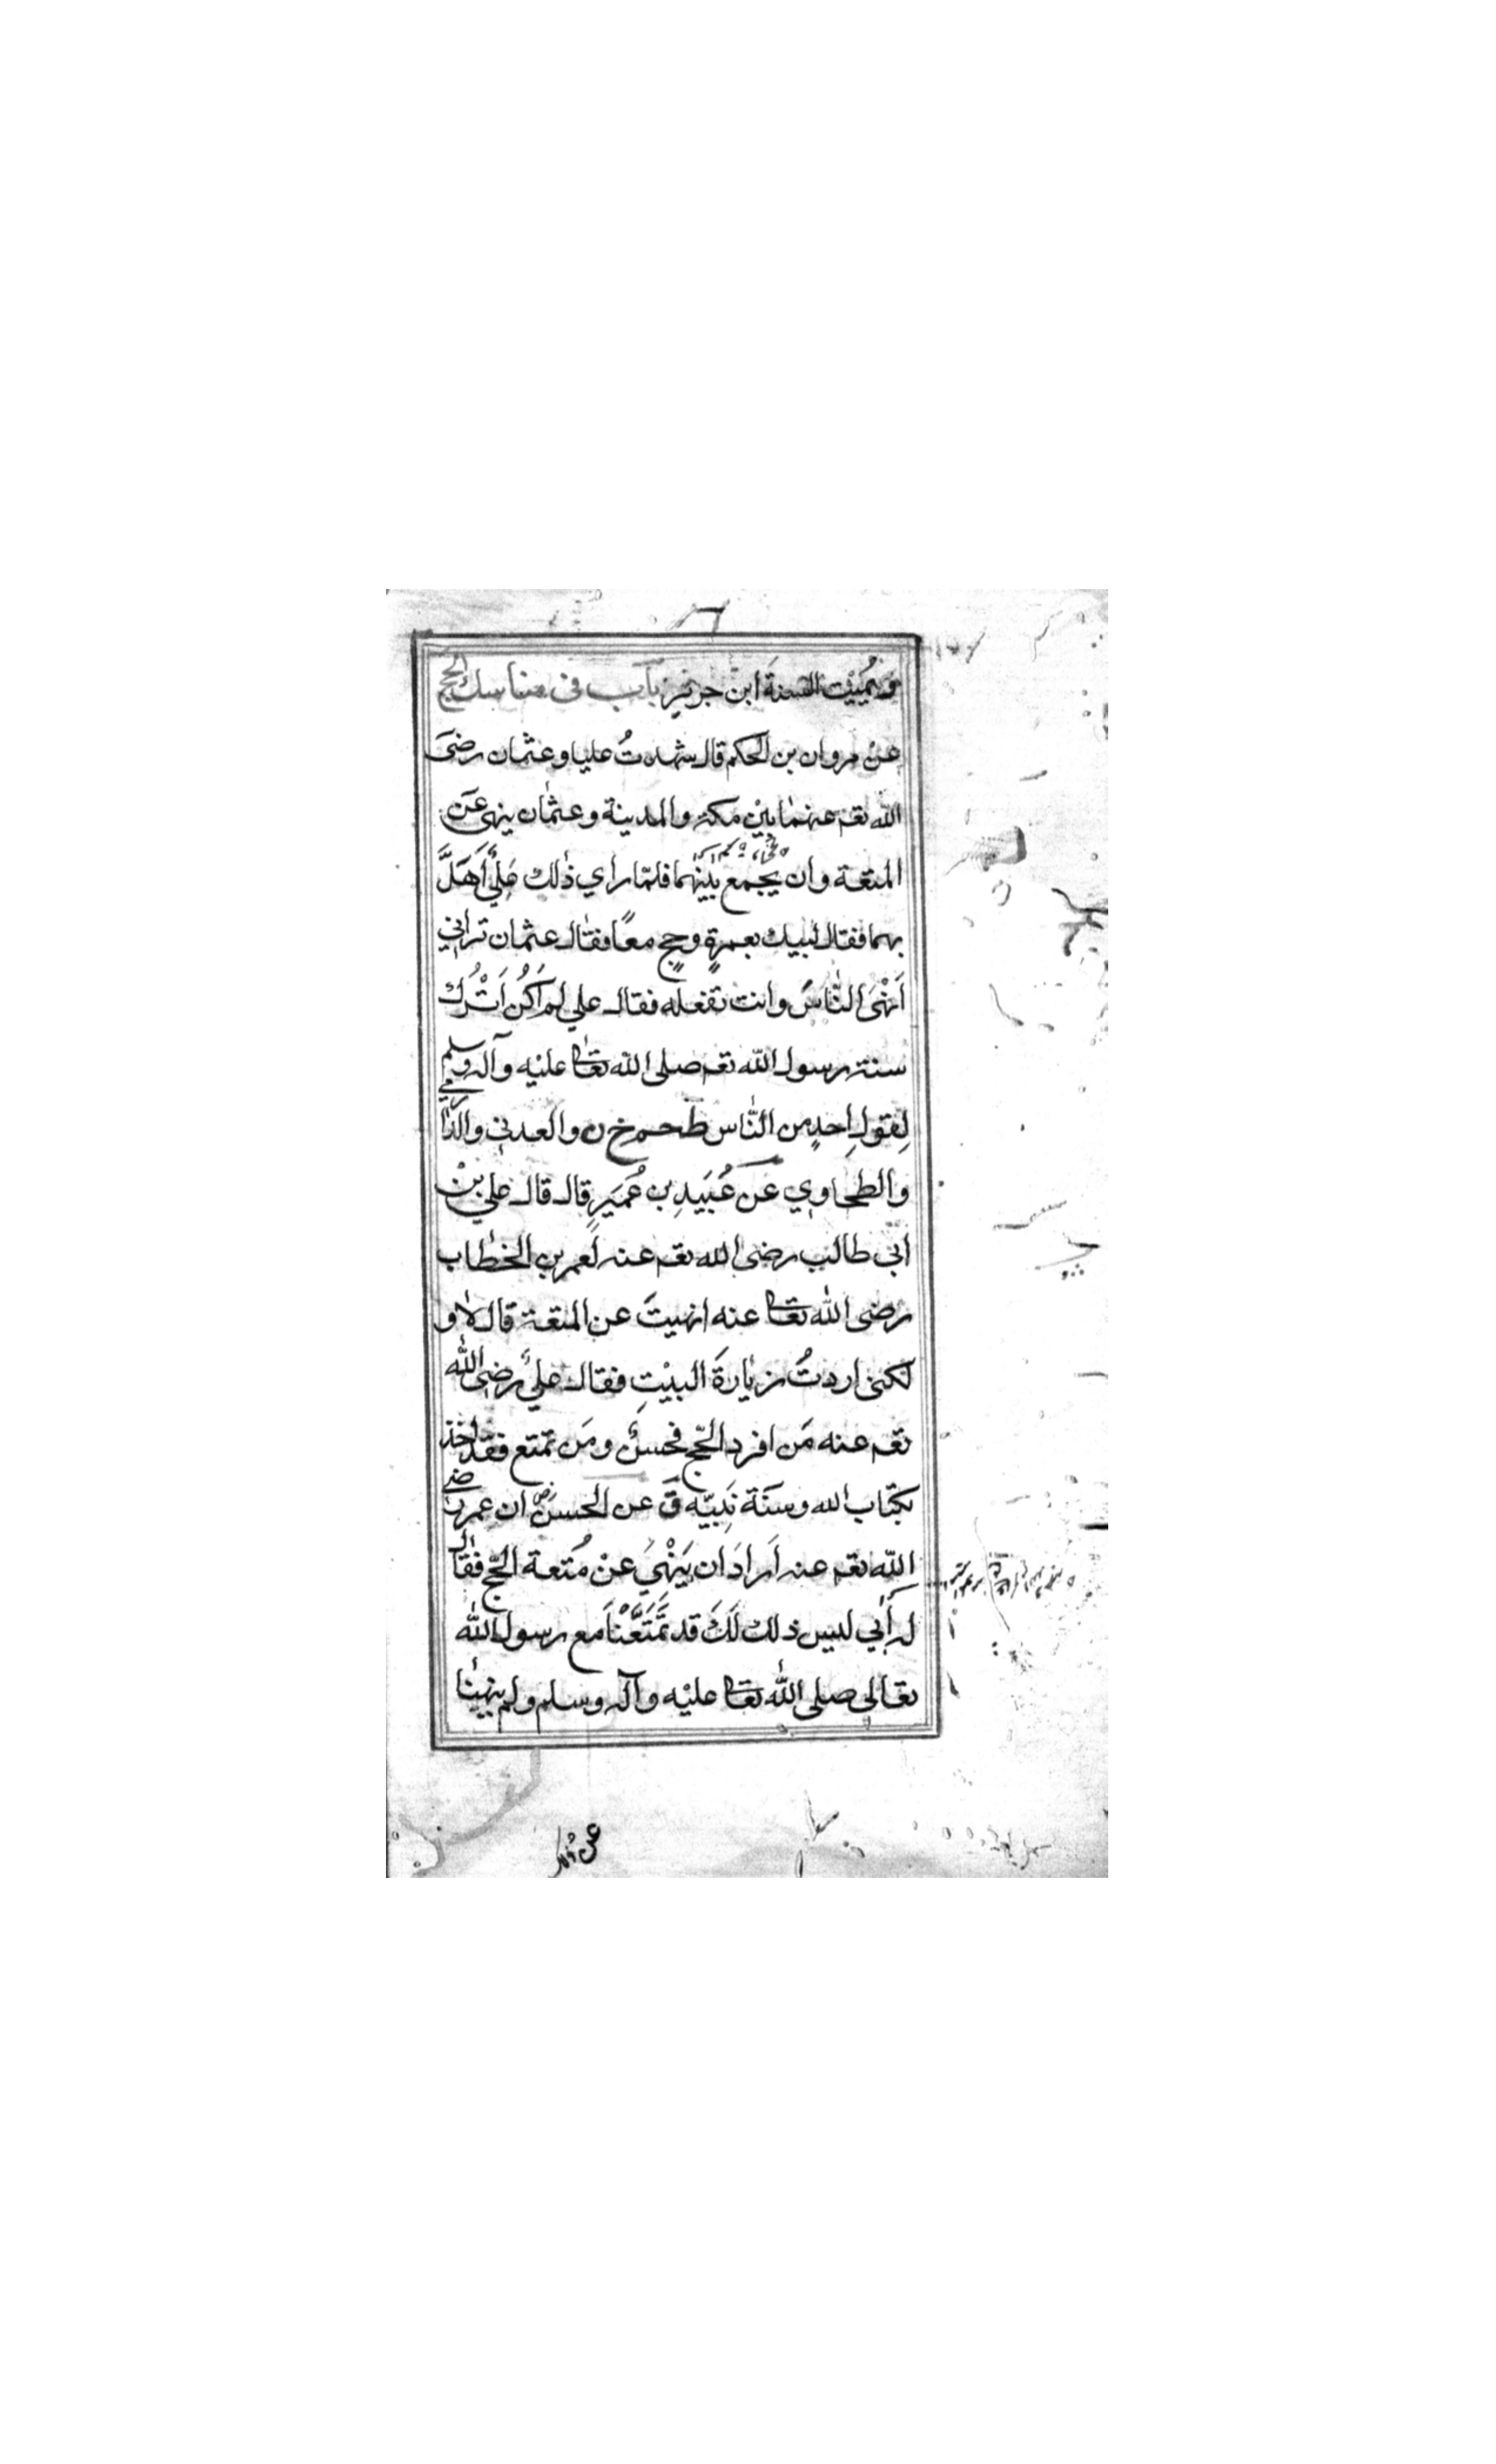 ويميت السنة ابن جرير باب في مناسك الحج
عنْ مروان بن الحكم قال شهدتُ عليا وعثمان رضى
الله تعـ عنهما بيْن مكة والمدينة وعثمان ينهى عَن
المتعة وان يُجْمع بيْنهما فلمّا راي ذٰلك عليٌّ اَهَلَّ
بهما فقال لبيك بعمرةٍ وحجٍ معًا فقال عثمان تراني
اَنْهَى النّاسَ وانت تفعله فقال علي لم اَكُن اَتْرُك
سنة رسول الله تعـ صلى الله تعا عليه وآله وسلم
لِقولِ احدٍ من النّاس ط حم خ ن والعدني والدارمي
والطحاوي عَن عُبَيدِ بن عُمَيرٍ قال قال علي بنْ
ابي طالب رضى الله تعـ عنه لعمر بن الخطاب
رضى الله تعا عنه انهيتَ عن المتعة قال لا و
لكنى اردتُ زيارةَ البيْتِ فقال عليٌّ رضى الله
تعـ عنه مَن افرد الحّج فحسنٌ ومَن تمتع فقد اخذ
بكتاب الله وسنّة نبيّه ق عن الحسنؓ ان عمر رضى
اللّه تعـ عنه اَرادَ ان يَنْهَيَ عنْ مُتعة الحّج فقال
له اُبي ليس ذلك لَكَ قد تَمَتَّعْنَا مع رسول الله
تعالى صلى الله تعا عليْه وآله وسلم ولم ينهنا
عن ذلك